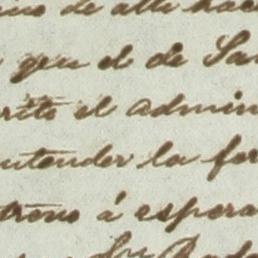 de alli hace
que el de San
rito el admin
ntender la for
treno á espera